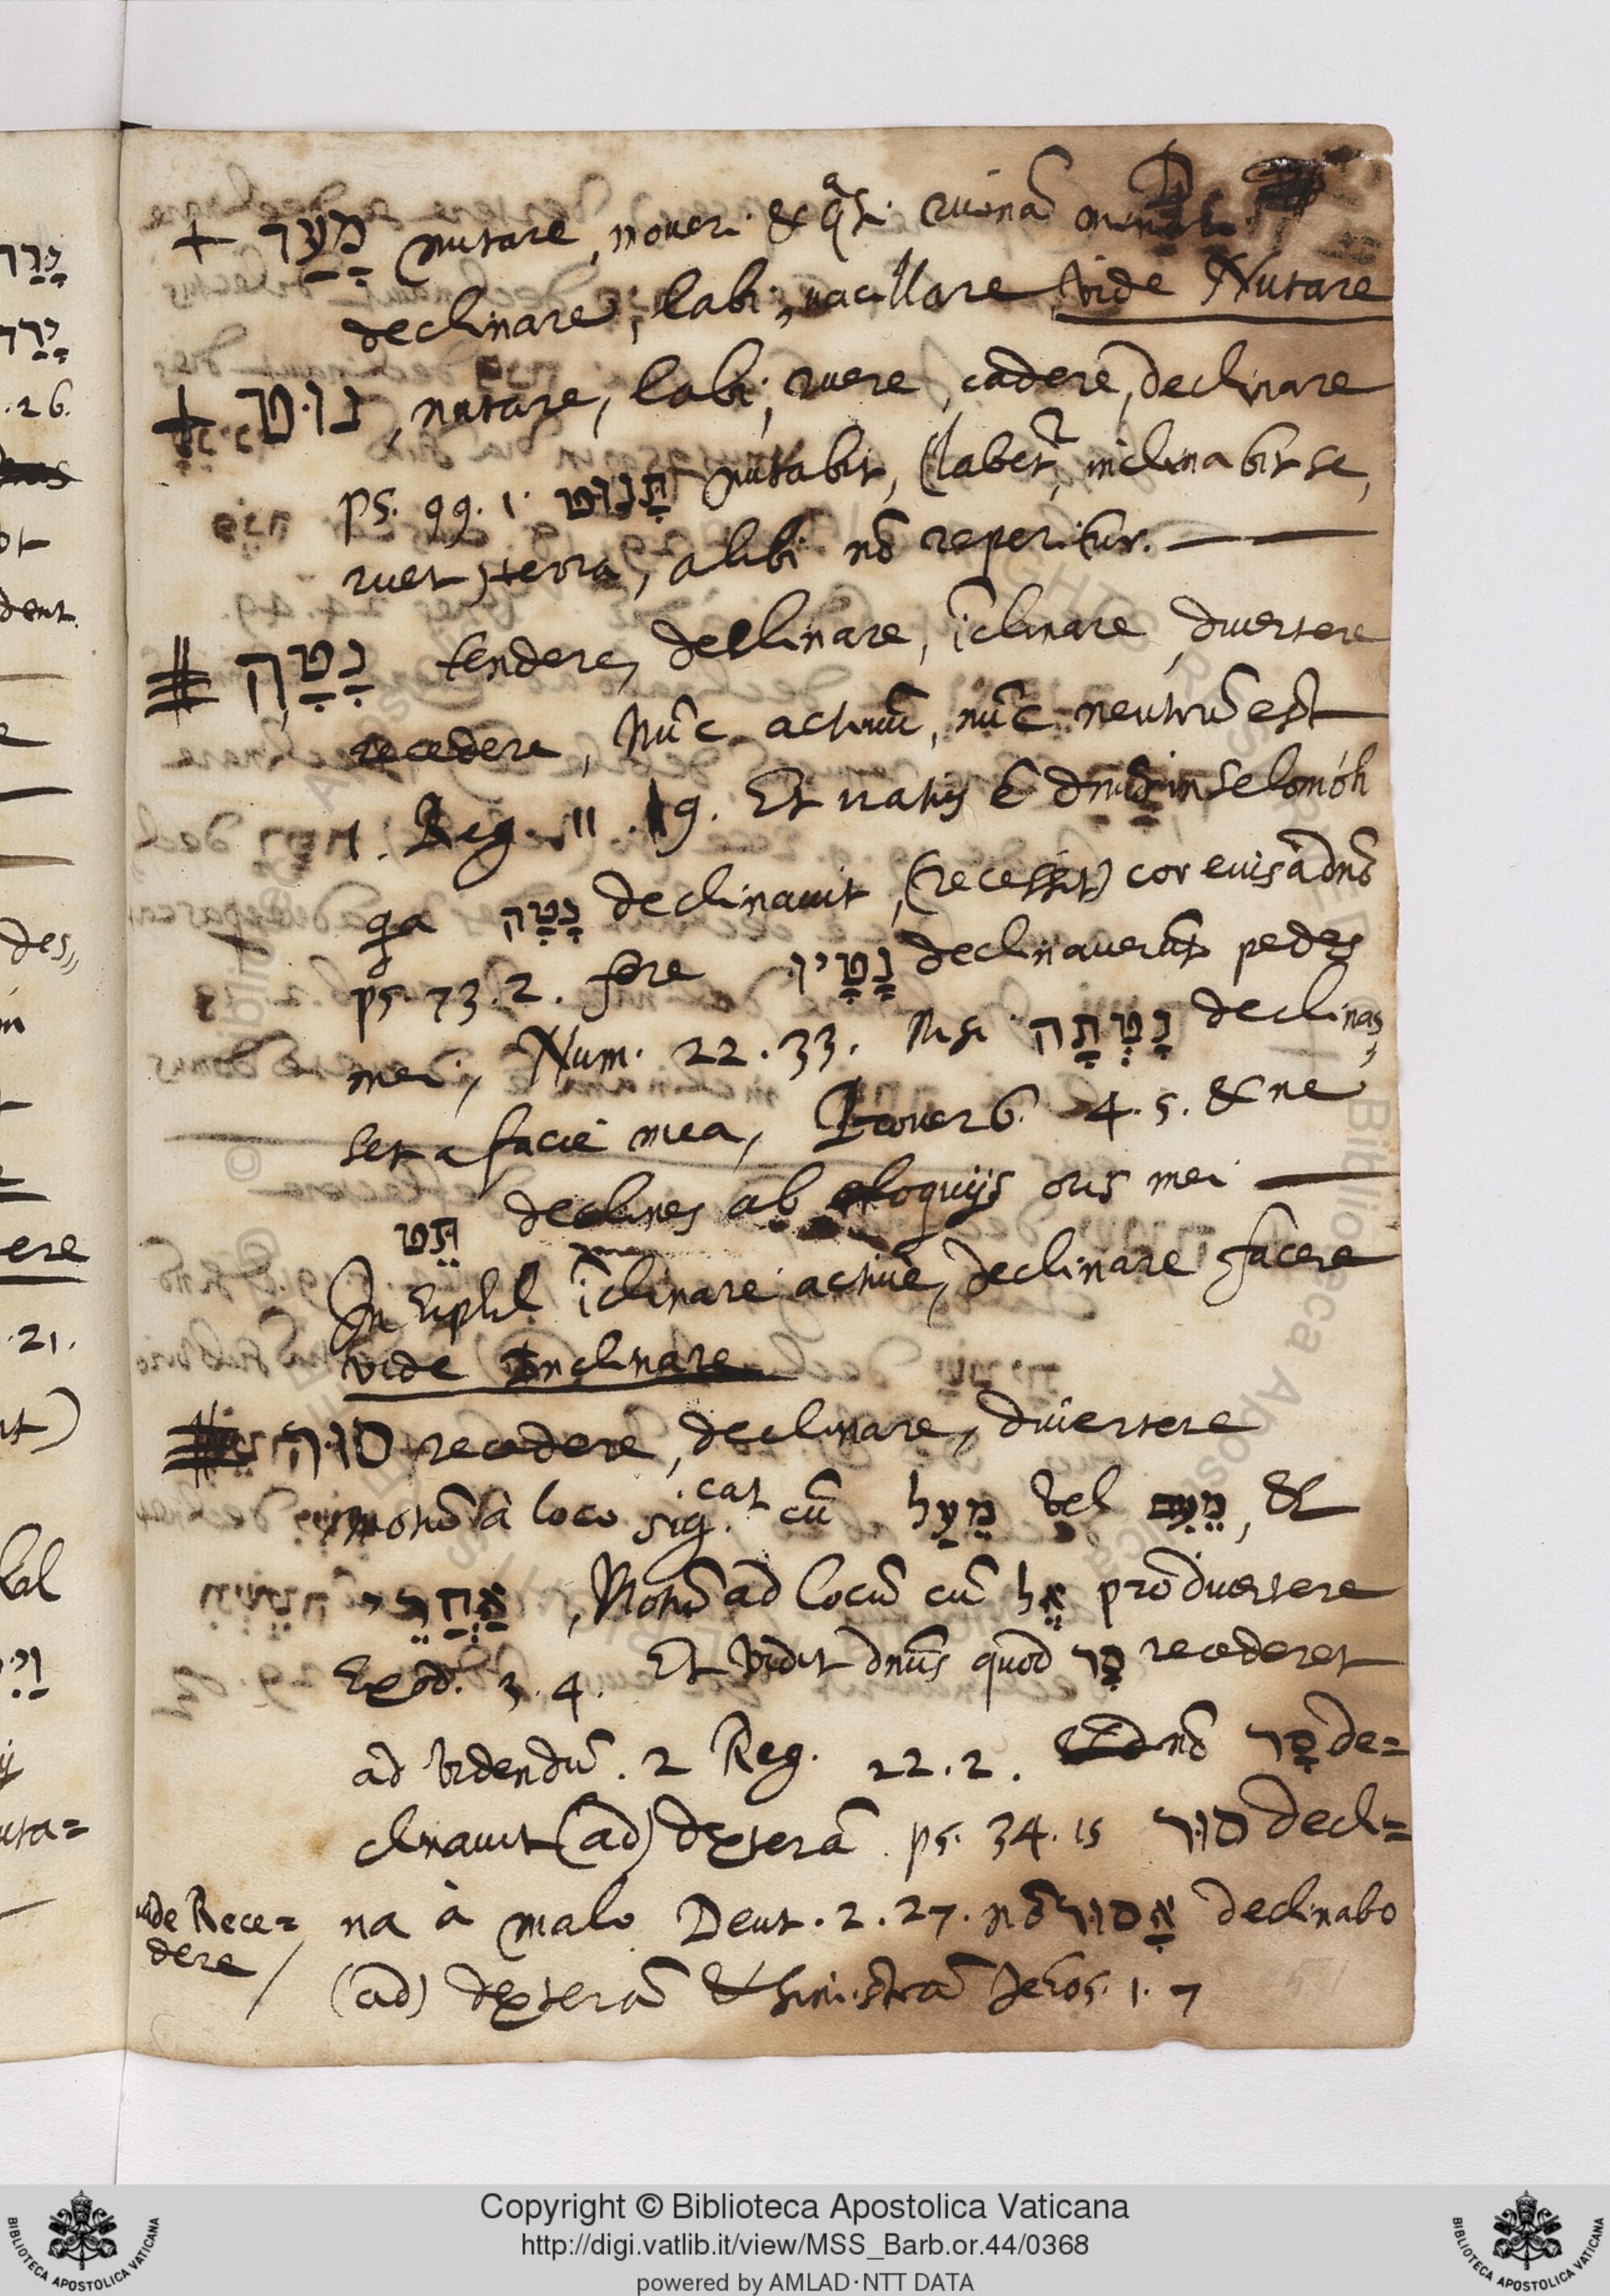 + מָעַד nutare, moueri & q̃si ruinã minari
declinare, labi, uacillare vide Nutare
+ נוּט, nutare, labi, ruere, cadere, declinare
ps. 99. 1. תָּנוּט nutabit, (labet̃, inclinabit se,
ruet) terra, alibi nõ reperitur.
נָטָה tendere, declinare, ĩclinare, diuertere
recedere, nũc actiuũ, nũc neutrũ est
1. Reg. 11. 9. Et iratus ẽ dñus in Selomóh
qa נָטָה declinauit, (recessit) cor euis à dnõ
ps. 73. 2. fere נָטָיוּ declinauerũt pedes
mei, Num. 22. 33. Nisi נָטְתָה declinas,
set a facie mea, Prouerb. 4. 5. & ne
תֵּט declines ab eloquijs oris mei
In Hiphil ĩclinare actiuè, declinare facere
vide Inclinare
סוּר recedere, declinare, diuertere
motũ à loco sig.cat cũ מֵעַל vel מֵעִם, &
אַחֲרֵי, Motũ ad locũ cũ אֶל pro diuertere
Exod. 3. 4. Et vidit dñus quod סָר recederet
ad videndũ. 2 Reg. 22. 2. nõ סָר de=
clinauit (ad) dexterã. ps. 34. 15 סוּר decli=
na à malo Deut. 2. 27. nõ אָסוּר declinabo
(ad) dexterã & sinistrã Jehos. 1. 7
vide Rece=
dere
Copyright © Biblioteca Apostolica Vaticana
http://digi.vatlib.it/view/MSS_Barb.or.44/0368
powered by AMLAD·NTT DATA
BIBLIOTECA APOSTOLICA VATICANA
BIBLIOTECA APOSTOLICA VATICANA